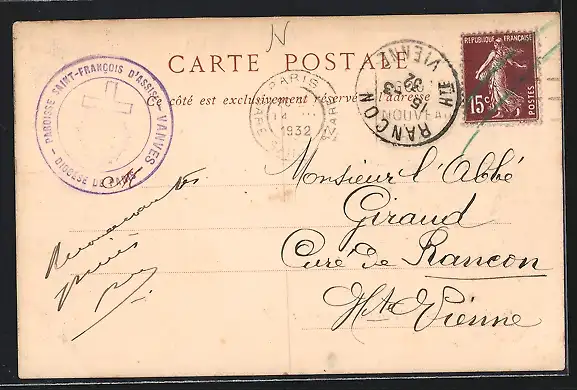 CARTE POSTALE
Ce côté est exclusivement réservé à l'adresse
PAROISSE SAINT-FRANÇOIS D'ASSISE VANVES
DIOCÈSE DE PARIS
PARIS
GARE
1932
RANÇON
HTE VIENNE
8-3
32
REPUBLIQUE FRANÇAISE
15c
POSTES
Monsieur l'Abbé
Giraud
Curé de Rancon
Hte Vienne